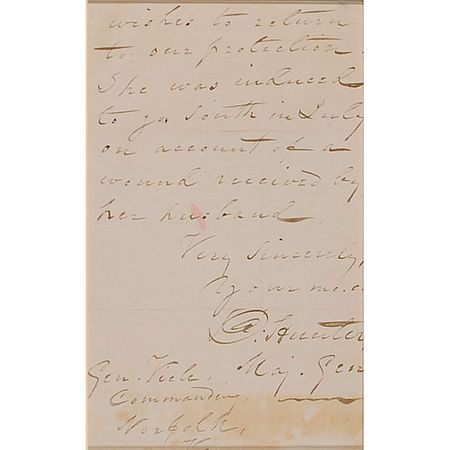 wishes to return
to our protection.
She was induced
to go South in July
on account of a
wound received by
her husband,
Very Sincerely,
Your m. o
D. Hunter,
Maj. Gen
Gen. Viele,
Commander,
Norfolk,